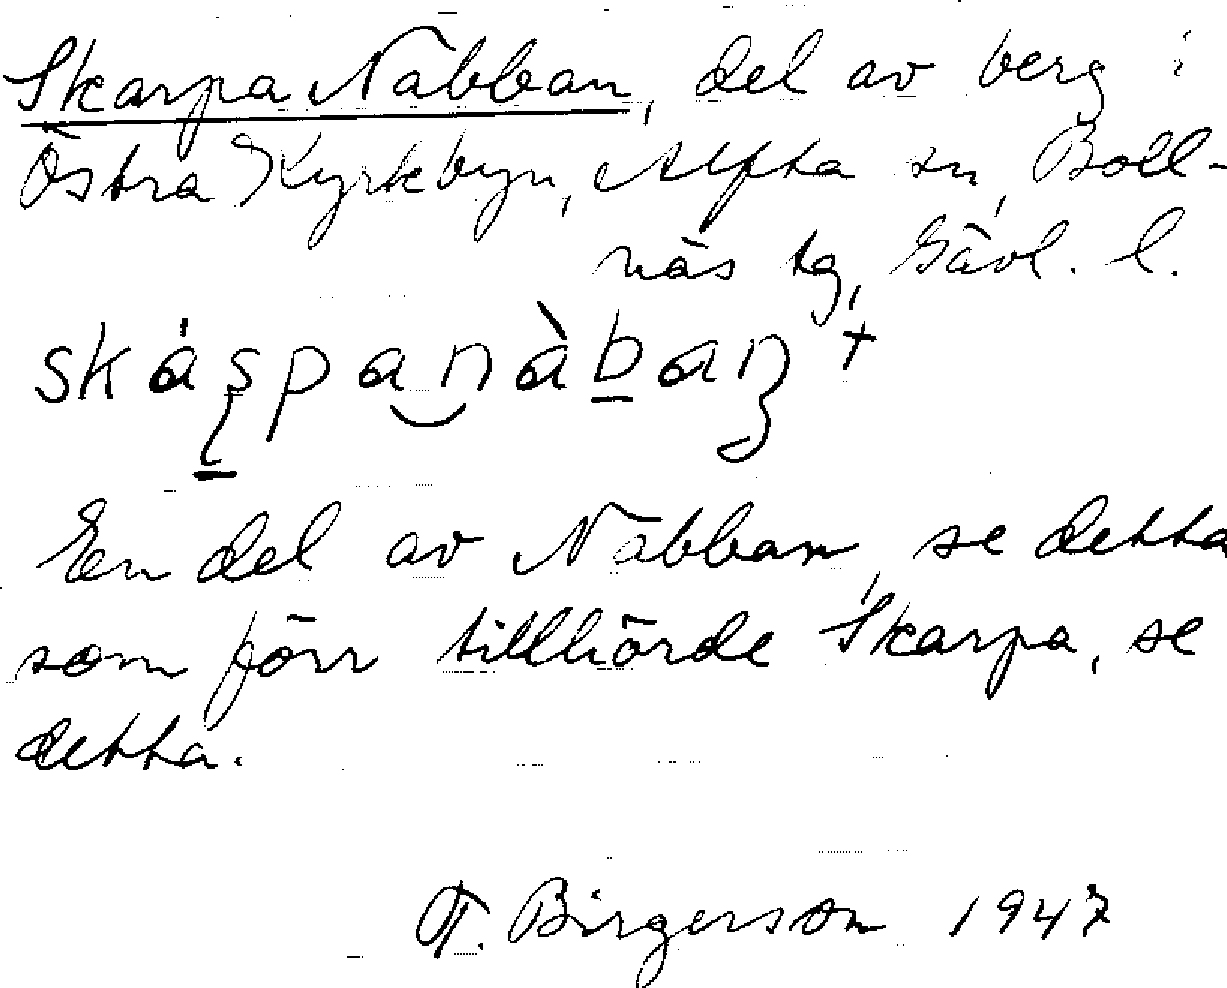 Skarpa Nabban, del av berg i
Östra Kyrkbyn, Alfta sn, Boll-
näs tg, Gävl. l.
skáʂpa‿nàban̡ +
En del av Nabban, se detta
som förr tillhörde Skarpa, se
detta.
T. Birgersson 1947